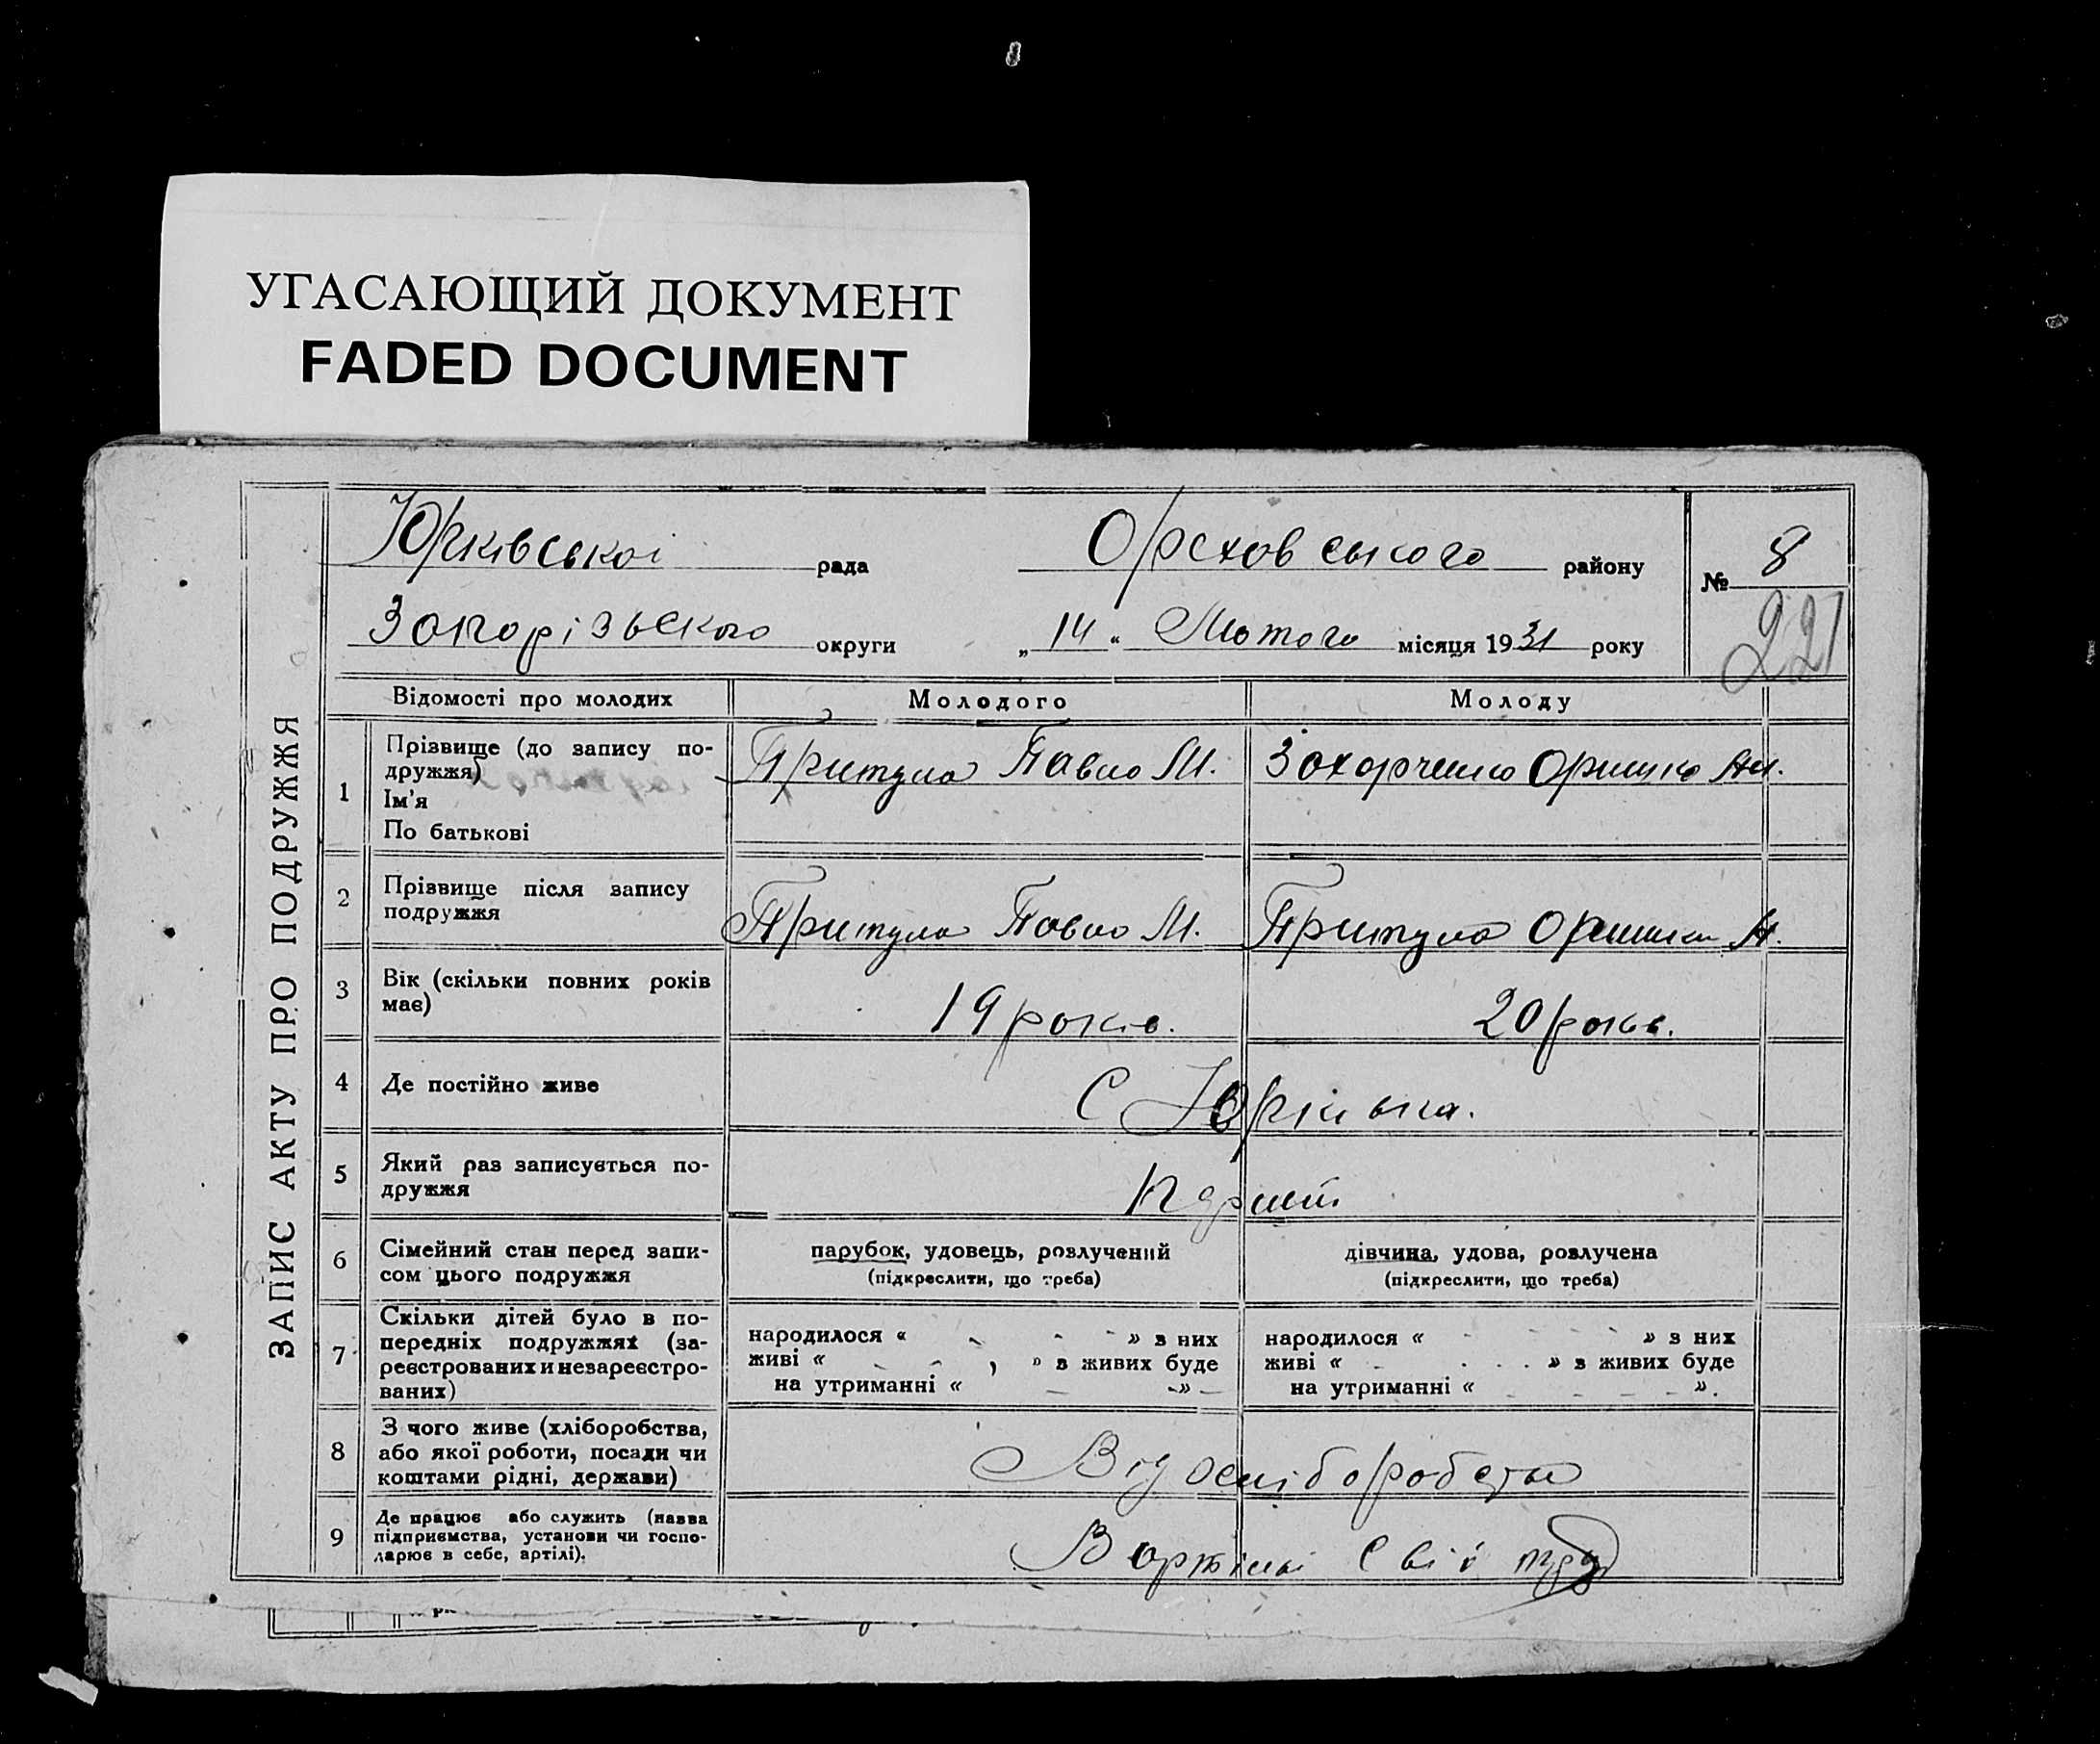 УГАСАЮЩИЙ ДОКУМЕНТ
FADED DOCUMENT
ЗАПИС АКТУ ПРО ПОДРУЖЖЯ
Юрківської рада Ореховського району № 8
Запорізького округи „14“ Лютого місяця 1931 року 221
Відомості про молодих Молодого Молоду
1 Прізвище (до запису по-
дружжя)
Ім'я
По батькові
Притула Павло М. Захарченко Оришка Ан.
2 Прізвище після запису
подружжя
Притула Павло М. Притула Оришка А.
3 Вік (скільки повних років
має)
19 років. 20 років.
4 Де постійно живе С Юрківка.
5 Який раз записується по-
дружжя
6 Сімейний стан перед запи-
сом цього подружжя
парубок, удовець, розлучений
(підкреслити, що треба)
дівчина, удова, розлучена
(підкреслити, що треба)
7 Скільки дітей було в по-
передніх подружжях (за-
реєстрованих и незареєстро-
ваних)
народилося « - - - » з них
живі « - - , » з живих буде
на утриманні « - -» -
народилося « - - - - » з них
живі « - . . . » з живих буде
на утриманні « - - - - ».
8 З чого живе (хліборобства,
або якої роботи, посади чи
коштами рідні, держави)
Від
9 Де працює або служить (назва
підприємства, установи чи госпо-
дарює в себе, артілі).
В артілі Свій труд